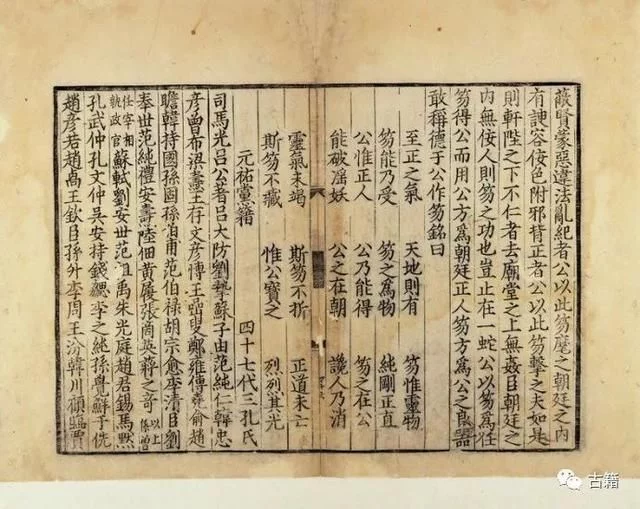 蔽賢蒙惡違法亂紀者公以此笏麾之朝廷之內
有諛容佞色附邪背正者公以此笏擊之夫如是
則軒陛之下不仁者去廟堂之上無姦臣朝廷之
內無佞人則笏之功也豈止在一蛇公以笏爲任
笏得公而用公方爲朝廷正人笏方爲公之良器
敢稱德于公作笏銘曰
至正之氣 天地則有 笏惟靈物
笏能乃受 笏之爲物 純剛正直
公惟正人 公乃能得 笏之在公
能破淫妖 公之在朝 讒人乃消
靈氣未竭 斯笏不折 正道未亡
斯笏不藏 惟公寶之 烈烈其光
元祐黨籍 四十七代三孔氏
司馬光呂公著呂大防劉摯蘇子由范純仁韓忠
彥曾布梁燾王存文彥博王喦叟鄭雍傅堯俞趙
瞻韓持國孫固孫伯甫范伯祿胡宗愈李清臣劉
奉世范純禮安燾陸佃黃履張商英蔣之奇以上係曾
任宰相執政官蘇軾劉安世范祖禹朱光庭趙君錫馬默
孔武仲孔文仲吳安持錢勰李之純孫覺鮮于侁
趙彥若趙卨王欽臣孫升李周王汾韓川顧臨賈
古籍